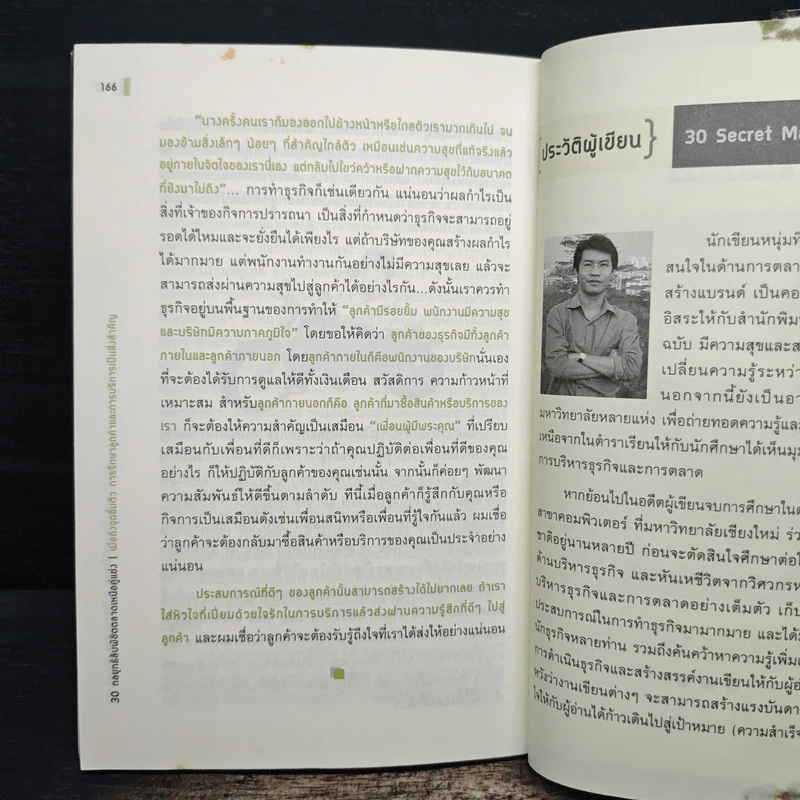 166
“บางครั้งคนเราก็มองออกไปข้างหน้าหรือไกลตัวเรามากเกินไป จน
มองข้ามสิ่งเล็กๆ น้อยๆ ที่สำคัญใกล้ตัว เหมือนเช่นความสุขที่แท้จริงแล้ว
อยู่ภายในจิตใจของเรานี่เอง แต่กลับไปไขว่คว้าหรือฝากความสุขไว้กับอนาคต
ที่ยังมาไม่ถึง”... การทำธุรกิจก็เช่นเดียวกัน แน่นอนว่าผลกำไรเป็น
สิ่งที่เจ้าของกิจการปรารถนา เป็นสิ่งที่กำหนดว่าธุรกิจจะสามารถอยู่
รอดได้ไหมและจะยั่งยืนได้เพียงไร แต่ถ้าบริษัทของคุณสร้างผลกำไร
ได้มากมาย แต่พนักงานทำงานกันอย่างไม่มีความสุขเลย แล้วจะ
สามารถส่งผ่านความสุขไปสู่ลูกค้าได้อย่างไรกัน...ดังนั้นเราควรทำ
ธุรกิจอยู่บนพื้นฐานของการทำให้ “ลูกค้ามีรอยยิ้ม พนักงานมีความสุข
และบริษัทมีความภาคภูมิใจ” โดยขอให้คิดว่า ลูกค้าของธุรกิจมีทั้งลูกค้า
ภายในและลูกค้าภายนอก โดยลูกค้าภายในก็คือพนักงานของบริษัทนั่นเอง
ที่จะต้องได้รับการดูแลให้ดีทั้งเงินเดือน สวัสดิการ ความก้าวหน้าที่
เหมาะสม สำหรับลูกค้าภายนอกก็คือ ลูกค้าที่มาซื้อสินค้าหรือบริการของ
เรา ก็จะต้องให้ความสำคัญเป็นเสมือน “เพื่อนผู้มีพระคุณ” ที่เปรียบ
เสมือนกับเพื่อนที่ดีก็เพราะว่าถ้าคุณปฏิบัติต่อเพื่อนที่ดีของคุณ
อย่างไร ก็ให้ปฏิบัติกับลูกค้าของคุณเช่นนั้น จากนั้นก็ค่อยๆ พัฒนา
ความสัมพันธ์ให้ดีขึ้นตามลำดับ ทีนี้เมื่อลูกค้าก็รู้สึกกับคุณหรือ
กิจการเป็นเสมือนดังเช่นเพื่อนสนิทหรือเพื่อนที่รู้ใจกันแล้ว ผมเชื่อ
ว่าลูกค้าจะต้องกลับมาซื้อสินค้าหรือบริการของคุณเป็นประจำอย่าง
แน่นอน
ประสบการณ์ที่ดีๆ ของลูกค้านั้นสามารถสร้างได้ไม่ยากเลย ถ้าเรา
ใส่หัวใจที่เปี่ยมด้วยใจรักในการบริการแล้วส่งผ่านความรู้สึกที่ดีๆ ไปสู่
ลูกค้า และผมเชื่อว่าลูกค้าจะต้องรับรู้ถึงใจที่เราได้ส่งให้อย่างแน่นอน
30 กลยุทธ์ลับพิชิตตลาดเหนือคู่แข่ง | เมื่อถึงจุดอิ่มตัว การรักษาลูกค้าและการบริการเป็นสิ่งสำคัญ
{ประวัติผู้เขียน}
30 Secret Ma
นักเขียนหนุ่มที่
สนใจในด้านการตลา
สร้างแบรนด์ เป็นคอ
อิสระให้กับสำนักพิม
ฉบับ มีความสุขและส
เปลี่ยนความรู้ระหว่า
นอกจากนี้ยังเป็นอา
มหาวิทยาลัยหลายแห่ง เพื่อถ่ายทอดความรู้และ
เหนือจากในตำราเรียนให้กับนักศึกษาได้เห็นมุม
การบริหารธุรกิจและการตลาด
หากย้อนไปในอดีตผู้เขียนจบการศึกษาในด
สาขาคอมพิวเตอร์ ที่มหาวิทยาลัยเชียงใหม่ ร่ว
ชาติอยู่นานหลายปี ก่อนจะตัดสินใจศึกษาต่อใ
ด้านบริหารธุรกิจ และหันเหชีวิตจากวิศวกรห
บริหารธุรกิจและการตลาดอย่างเต็มตัว เก็บ
ประสบการณ์ในการทำธุรกิจมามากมาย และได้
นักธุรกิจหลายท่าน รวมถึงค้นคว้าหาความรู้เพิ่มเ
การดำเนินธุรกิจและสร้างสรรค์งานเขียนให้กับผู้อ่
หวังว่างานเขียนต่างๆ จะสามารถสร้างแรงบันดา
ใจให้กับผู้อ่านได้ก้าวเดินไปสู่เป้าหมาย (ความสำเร็จ